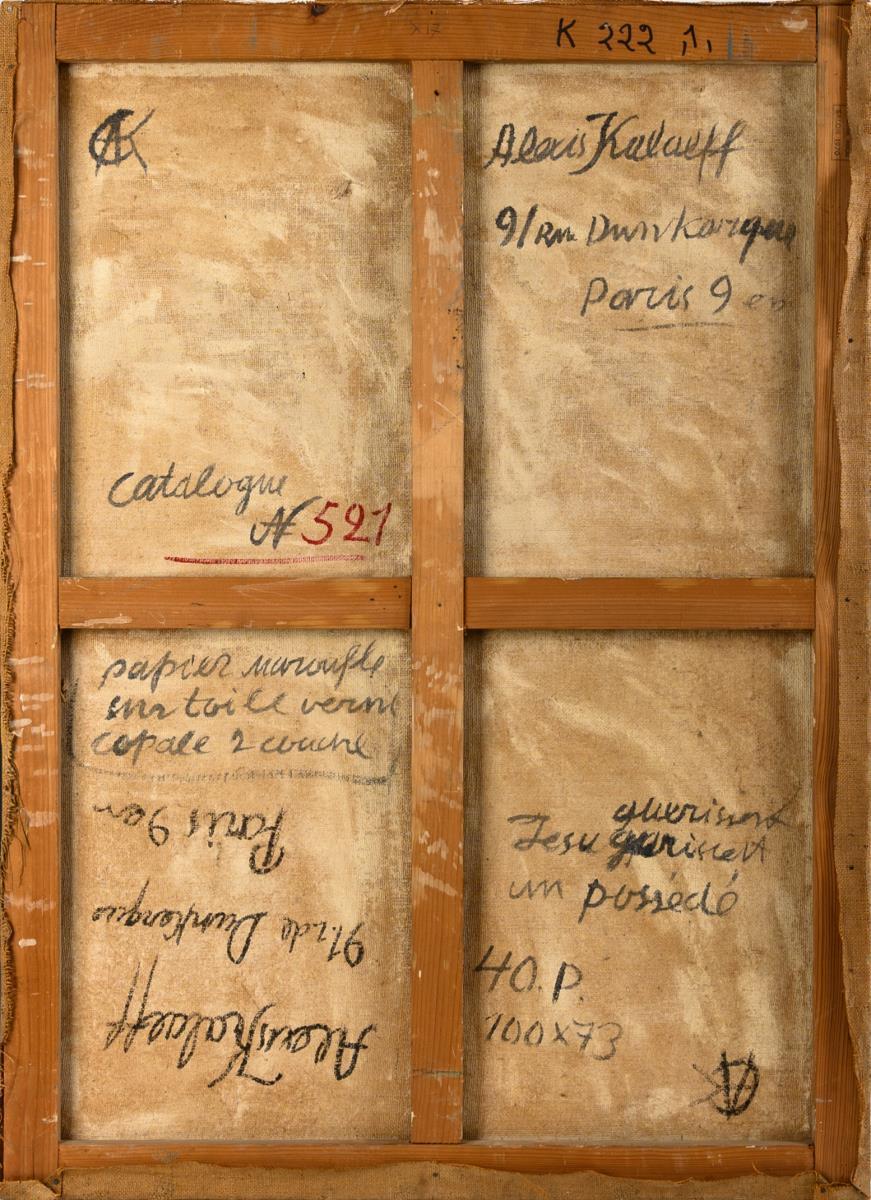 K 222 1,
AK
Alexis Kalaeff
91 Rue Dunkerque
Paris 9 em
catalogue
N 521
papier maroufle
sur toile verni
copale 2 couche
guerissent
Jesu garissent
un possédé
40. P.
100x73
AK
Alexis Kalaeff
91 r de Dunkerque
Paris 9 em